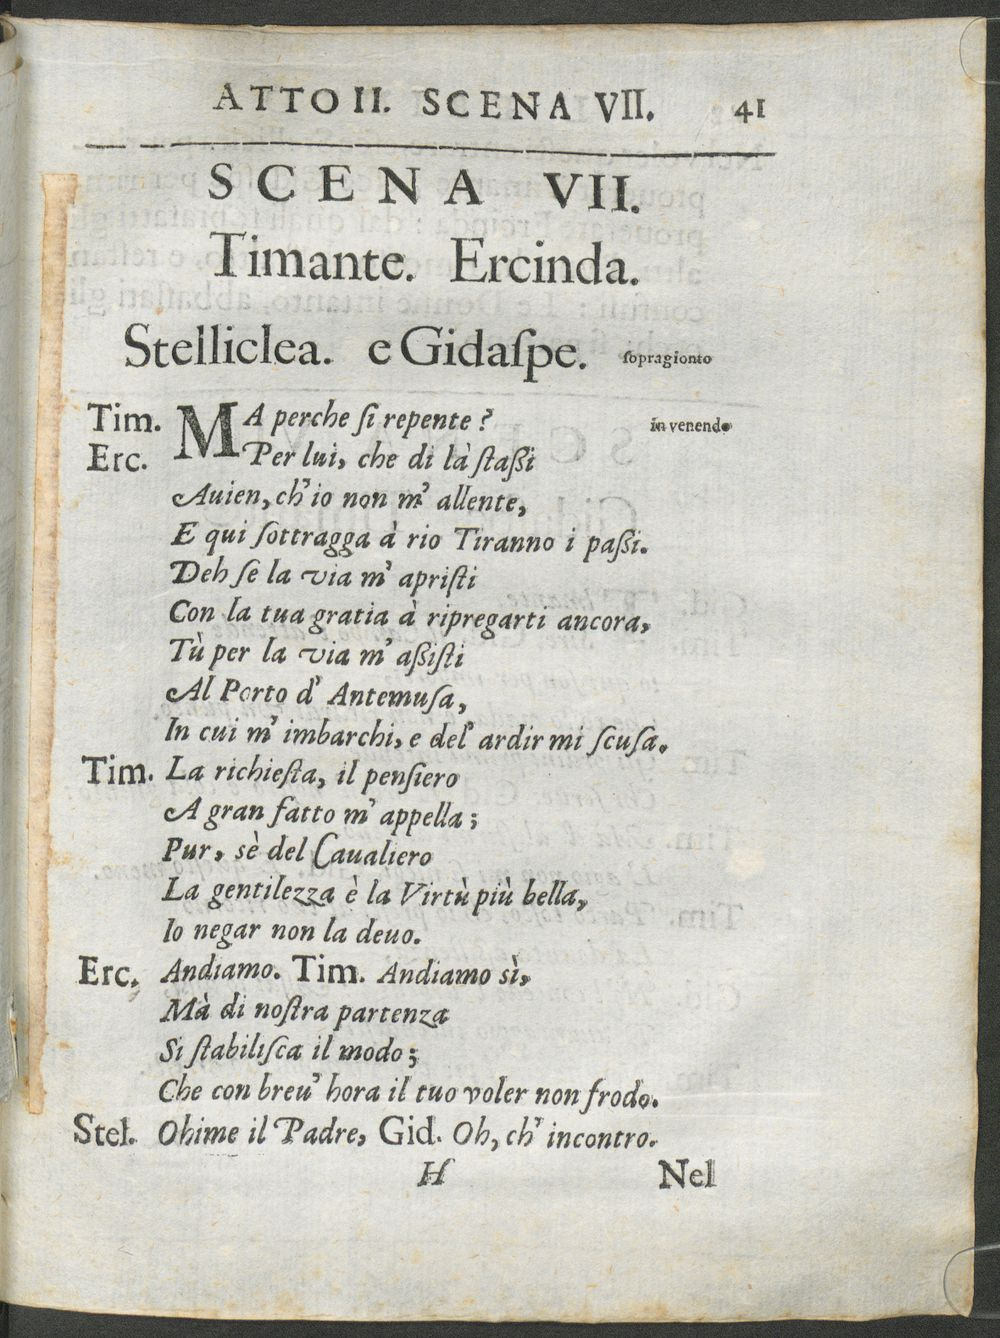 ATTO II. SCENA VII. 41
SCENA VII.
Timante. Ercinda.
Stelliclea. e Gidaſpe. ſopragionto
Tim. MA perche ſi repente? in venendo
Erc. Per lui, che di là ſtaßi
Auien, ch'io non m' allente,
E qui ſottragga à rio Tiranno i paßi.
Deh ſe la via m' apriſti
Con la tua gratia à ripregarti ancora,
Tù per la via m' aßiſti
Al Porto d' Antemuſa,
In cui m' imbarchi, e del' ardir mi scuſa.
Tim. La richieſta, il penſiero
A gran fatto m' appella;
Pur, sè del Caualiero
La gentilezza è la Virtù più bella,
Io negar non la deuo.
Erc. Andiamo. Tim. Andiamo sì,
Mà di noſtra partenza
Si ſtabiliſca il modo;
Che con breu' hora il tuo voler non frodo.
Stel. Ohime il Padre, Gid. Oh, ch' incontro.
H Nel